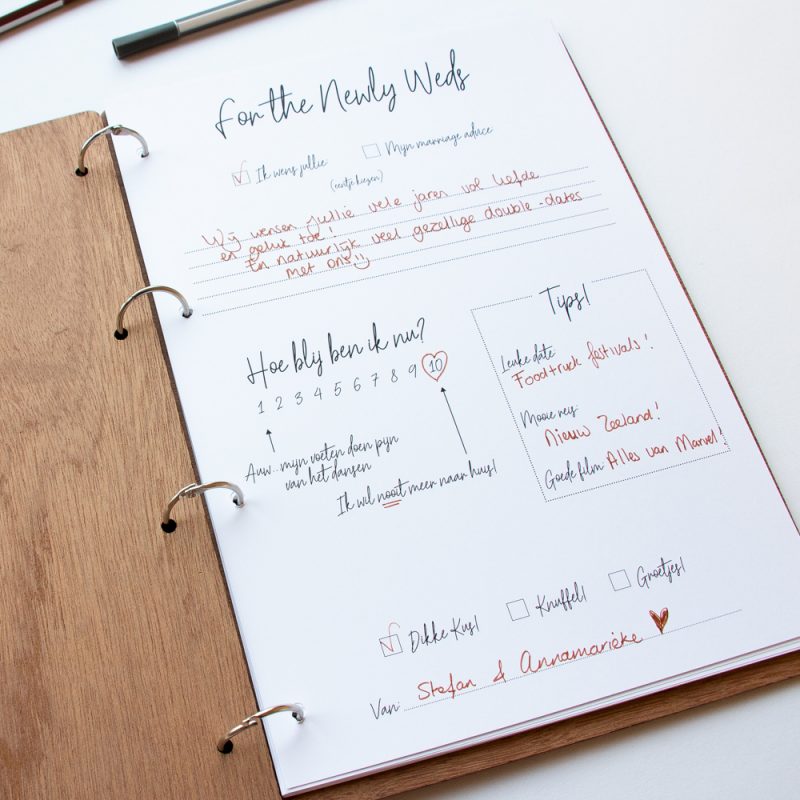 For the Newly Weds
Ik wens jullie
Mijn marriage advice
(eentje kiezen)
Wij wensen jullie vele jaren vol liefde
en geluk toe!
En natuurlijk veel gezellige double-dates
met ons!!
Hoe blij ben ik nu?
1 2 3 4 5 6 7 8 9 10
Auw.. mijn voeten doen pijn
van het dansen
Ik wil nooit meer naar huis!
Tips!
Leuke date:
Foodtruck festivals!
Mooie reis:
Nieuw Zeeland!
Goede film: Alles van Marvel!
Dikke Kus!
Knuffel!
Groetjes!
Van: Stefan & Annamarieke